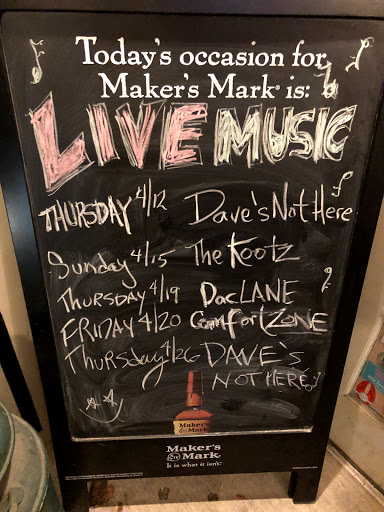 Today's occasion for
Maker's Mark® is:
LIVE MUSIC
THURSDAY 4/12 Dave's Not Here
Sunday 4/15 The Kootz
THURSDAY 4/19 DocLANE
FRIDAY 4/20 ComfortZONE
Thursday 4/26 DAVE'S
NOT HERE
Maker's
Mark
Maker's
Mark
It is what it isn't.